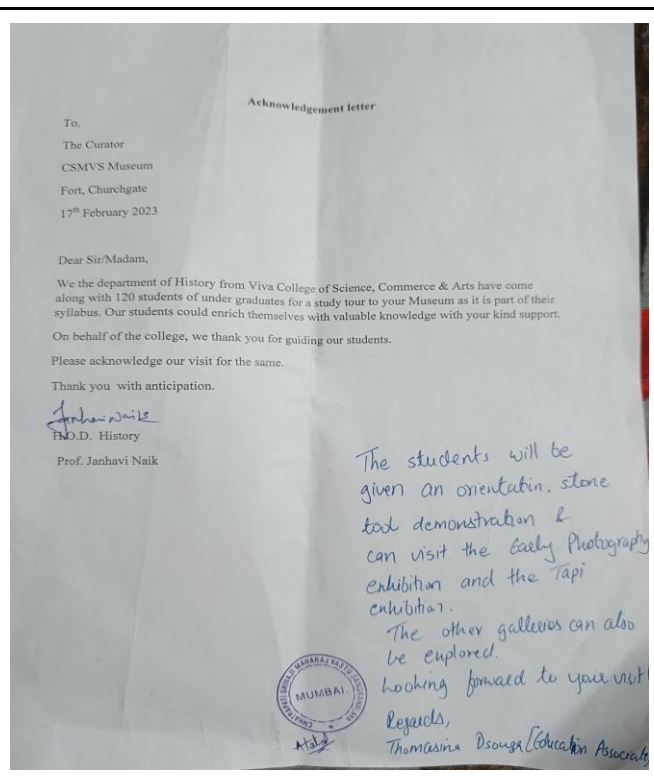 Acknowledgement letter
To,
The Curator
CSMVS Museum
Fort, Churchgate
17th February 2023
Dear Sir/Madam,
We the department of History from Viva College of Science, Commerce & Arts have come
along with 120 students of under graduates for a study tour to your Museum as it is part of their
syllabus. Our students could enrich themselves with valuable knowledge with your kind support.
On behalf of the college, we thank you for guiding our students.
Please acknowledge our visit for the same.
Thank you with anticipation.
Janhavi Naik
H.O.D. History
Prof. Janhavi Naik
The students will be
given an orientatin, stone
tool demonstration &
can visit the Early Photography
exhibition and the Tapi
exhibition.
The other galleries can also
be explored.
Looking forward to your visit!
Regards,
Thomasina Dsouza [Education Associate]
CHHATRAPATI SHIVAJI MAHARAJ VASTU SANGRAHALAYA
MUMBAI.